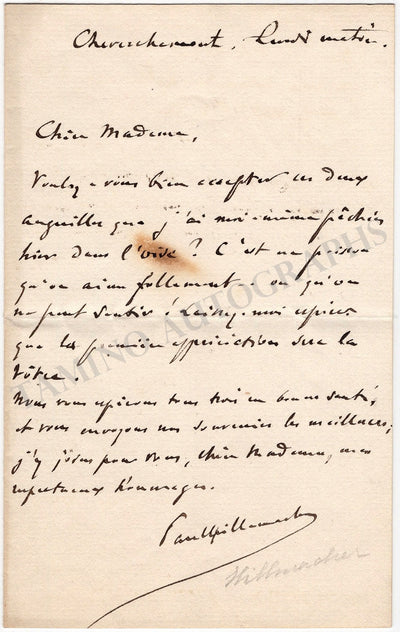 Lundi matin.
Chère Madame,
Voulez-vous bien accepter ces deux
anguilles que j'ai moi-même pêchées
hier dans l'Oise ? C'est un poisson
qu'on aime follement ou qu'on
ne peut sentir ; laissez-moi espérer
que la première appréciation sera la
vôtre.
Nous vous espérons tous trois en bonne santé,
et vous envoyons nos souvenirs les meilleurs ;
j'y joins pour vous, chère Madame, mes
respectueux hommages.
Paul Hillemacher
Hillmacher
TAMINO AUTOGRAPHS